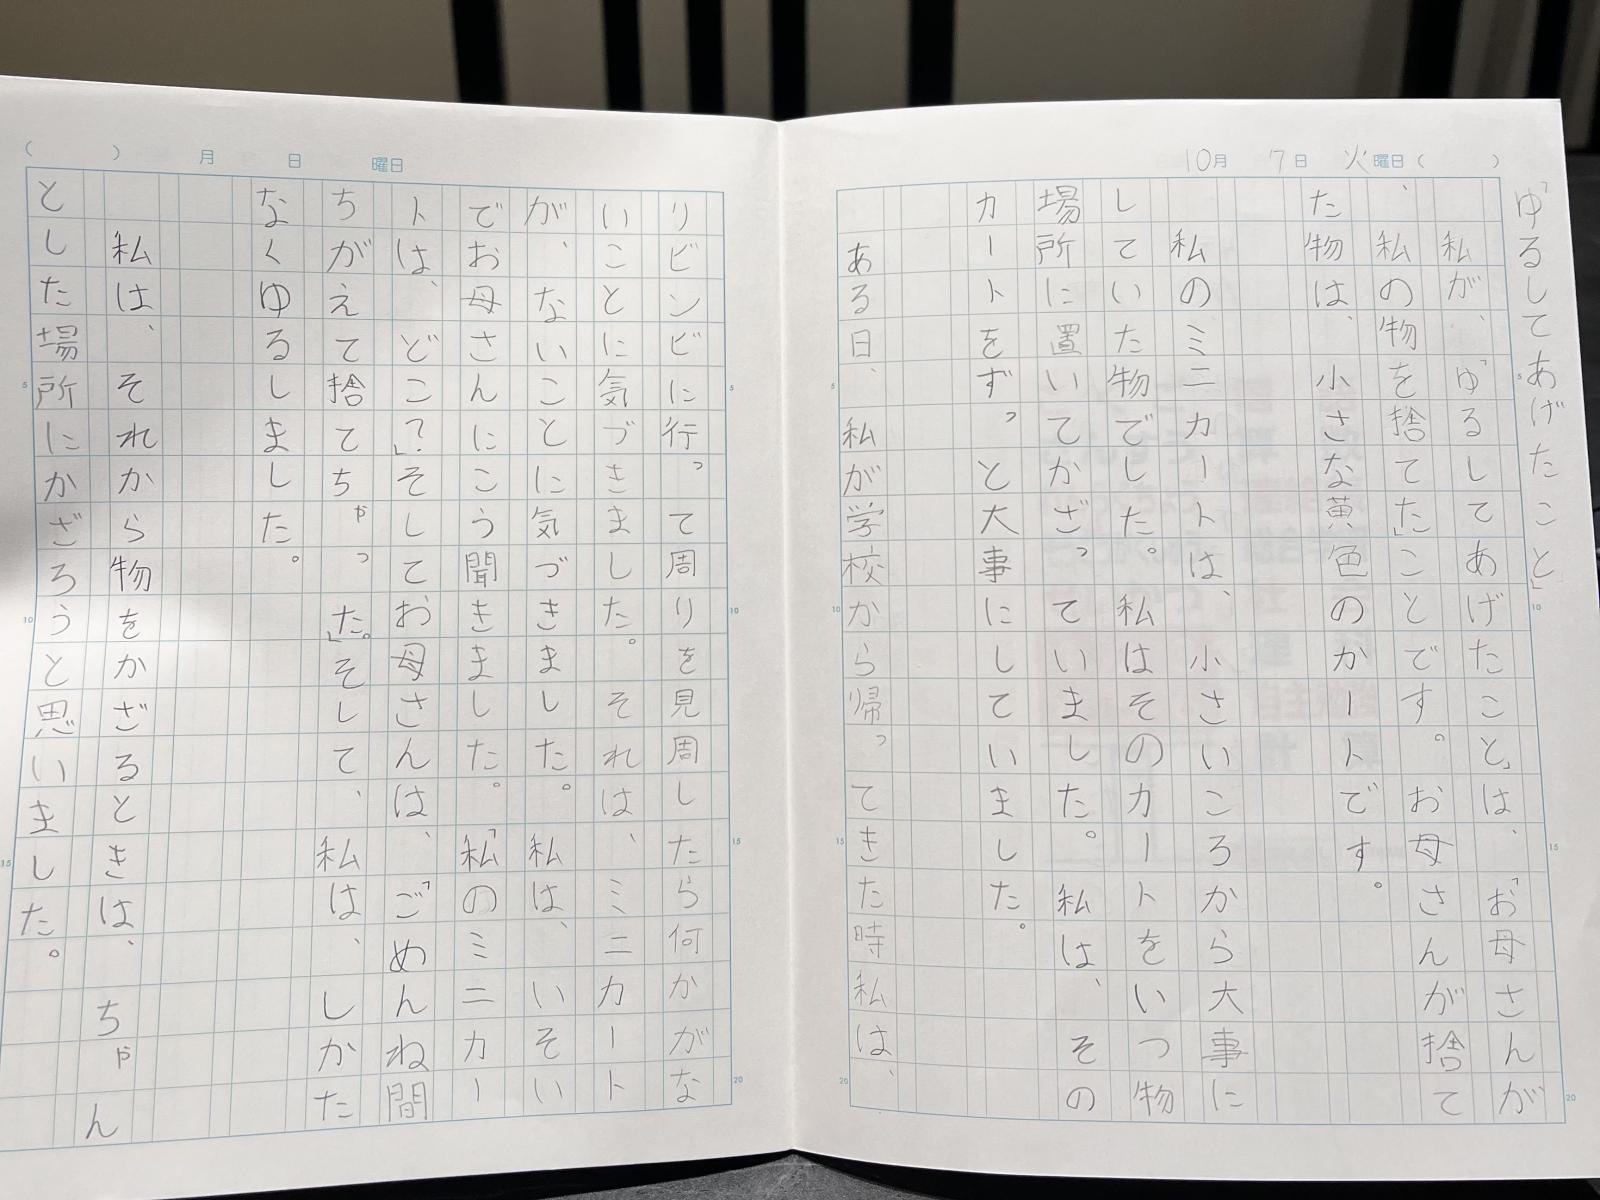 10月 7日 火曜日( )
「ゆるしてあげたこと」
私が、「ゆるしてあげたこと」は、「お母さんが
、私の物を捨てた」ことです。お母さんが捨て
た物は、小さな黄色のカートです。
私のミニカートは、小さいころから大事に
していた物でした。私はそのカートをいつ物
場所に置いてかざっていました。私は、その
カートをずっと大事にしていました。
ある日、私が学校から帰ってきた時私は、
( ) 月 日 曜日
リビンビに行って周りを見周したら何かがな
いことに気づきました。それは、ミニカート
が、ないことに気づきました。私は、いそい
でお母さんにこう聞きました。「私のミニカー
トは、どこ?」そしてお母さんは、「ごめんね間
ちがえて捨てちゃった。」そして、私は、しかた
なくゆるしました。
私は、それから物をかざるときは、ちゃん
とした場所にかざろうと思いました。